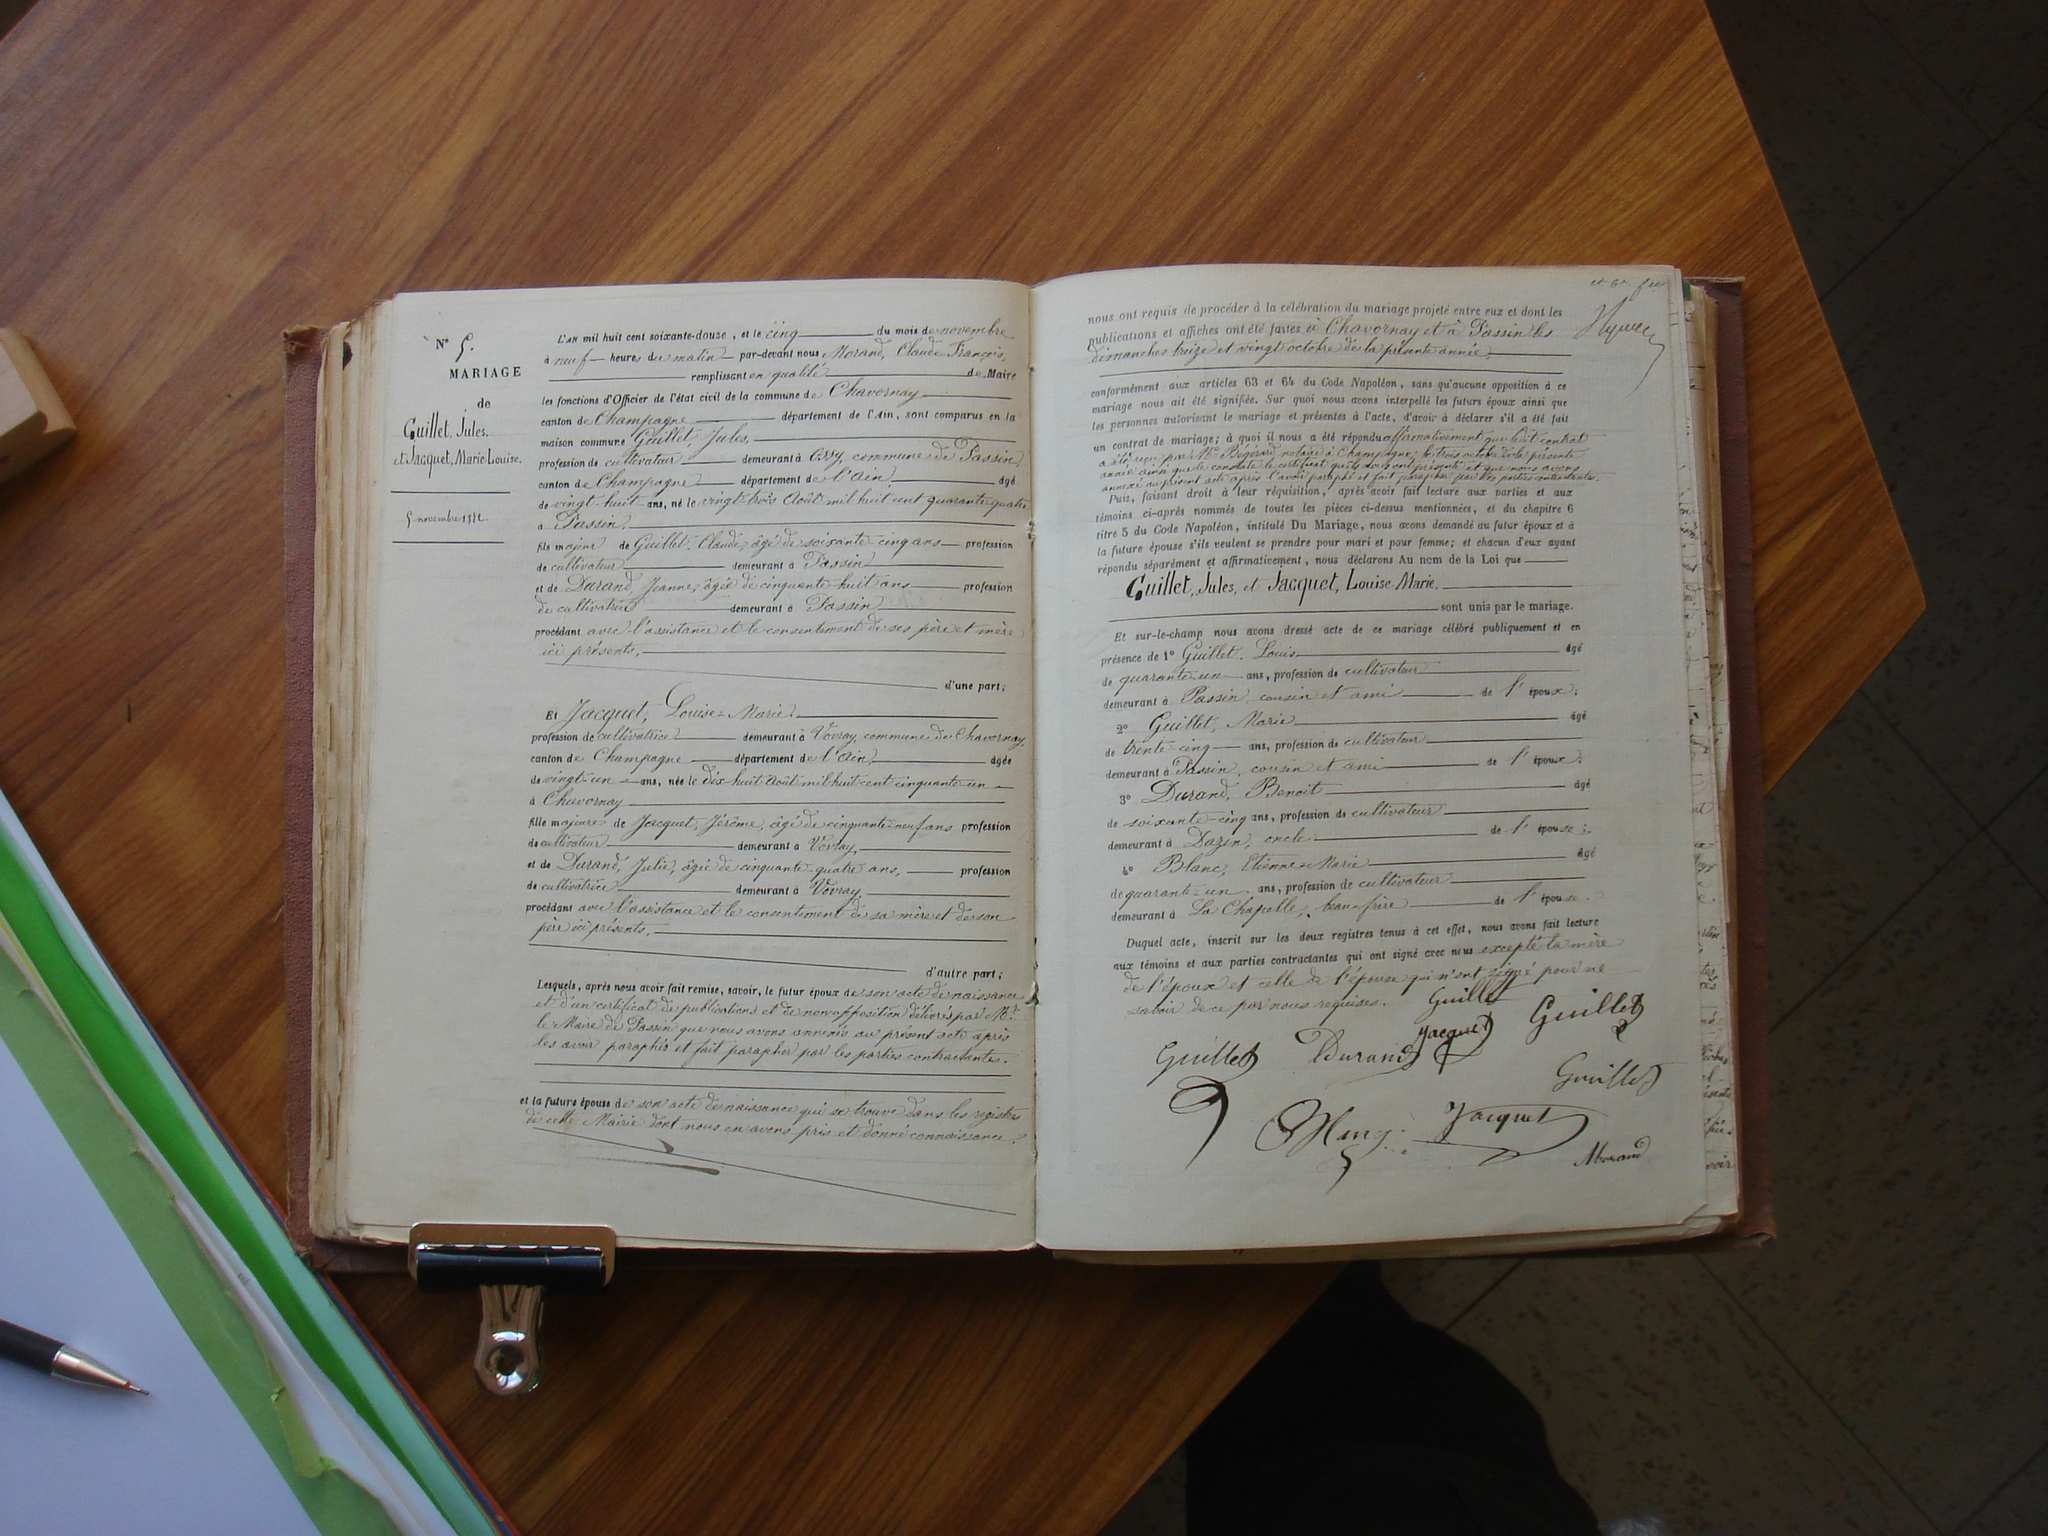 N° 5.
MARIAGE
de
Guillet, Jules.
et Jacquet, Marie-Louise.
5 novembre 1872.
L'an mil huit cent soixante-douze, et le cinq du mois de novembre
à neuf heures du matin par-devant nous Morand, Claude François,
remplissant en qualité de Maire
les fonctions d'Officier de l'état civil de la commune de Chavornay
canton de Champagne département de l'Ain, sont comparus en la
maison commune Guillet Jules,
profession de cultivateur demeurant à Ossy, commune de Passin
canton de Champagne département de l'Ain âgé
de vingt-huit ans, né le vingt-trois Août mil huit cent quarante quatre
à Passin
fils majeur de Guillet, Claude, âgé de soixante-cinq ans profession
de cultivateur demeurant à Passin
et de Durand, Jeanne, âgée de cinquante huit ans profession
de cultivatrice demeurant à Passin
procédant avec l'assistance et le consentement de ses père et mère
ici présents,
d'une part;
Et Jacquet, Louise-Marie
profession de cultivatrice demeurant à Vovray, commune de Chavornay,
canton de Champagne département de l'Ain, âgée
de vingt-un ans, née le dix huit Août mil huit cent cinquante-un
à Chavornay
fille majeure de Jacquet, Jérôme, âgé de cinquante-neuf ans profession
de cultivateur demeurant à Vovray,
et de Durand, Julie, âgée de cinquante quatre ans, profession
de cultivatrice demeurant à Vovray,
procédant avec l'assistance et le consentement de sa mère et de son
père ici présents,
d'autre part;
Lesquels, après nous avoir fait remise, savoir, le futur époux de son acte de naissance
et d'un certificat de publications et de non opposition délivrés par Mr
le Maire de Passin que nous avons annexés au présent acte après
les avoir paraphés et fait parapher par les parties contractantes.
et la future épouse de son acte de naissance qui se trouve dans les registres
de cette Mairie dont nous en avons pris et donné connaissance.
nous ont requis de procéder à la célébration du mariage projeté entre eux et dont les
publications et affiches ont été faites à Chavornay et à Passin les
dimanches treize et vingt octobre de la présente année.
conformément aux articles 63 et 64 du Code Napoléon, sans qu'aucune opposition à ce
mariage nous ait été signifiée. Sur quoi nous avons interpellé les futurs époux ainsi que
les personnes autorisant le mariage et présentes à l'acte, d'avoir à déclarer s'il a été fait
un contrat de mariage; à quoi il nous a été répondu affirmativement que ledit contrat
a été reçu par Me notaire à Champagne, le trois octobre de la présente
année ainsi que le constate le certificat qu'ils nous ont présenté et que nous avons
annexé au présent acte après l'avoir paraphé et fait parapher par les parties contractantes.
Puis, faisant droit à leur réquisition, après avoir fait lecture aux parties et aux
témoins ci-après nommés de toutes les pièces ci-dessus mentionnées, et du chapitre 6
titre 5 du Code Napoléon, intitulé Du Mariage, nous avons demandé au futur époux et à
la future épouse s'ils veulent se prendre pour mari et pour femme; et chacun d'eux ayant
répondu séparément et affirmativement, nous déclarons Au nom de la Loi que
Guillet, Jules, et Jacquet, Louise-Marie.
sont unis par le mariage.
Et sur-le-champ nous avons dressé acte de ce mariage célébré publiquement et en
présence de 1° Guillet, Louis âgé
de quarante-un ans, profession de cultivateur
demeurant à Passin, cousin et ami de l'époux;
2° Guillet, Marie âgé
de trente-cinq ans, profession de cultivateur
demeurant à Passin, cousin et ami de l'époux;
3° Durand, Benoît âgé
de soixante-cinq ans, profession de cultivateur
demeurant à Dazin, oncle de l'épouse;
4° Blanc, Etienne-Marie âgé
de quarante-un ans, profession de cultivateur
demeurant à La Chapelle, beau-frère de l'épouse.
Duquel acte, inscrit sur les deux registres tenus à cet effet, nous avons fait lecture
aux témoins et aux parties contractantes qui ont signé avec nous excepté la mère
de l'époux et celle de l'épouse qui n'ont signé pour ne
savoir de ce par nous requises.
Guillet
Guillet
Jacquet
Guillet
Durand
Guillet
Blanc
Jacquet
Morand